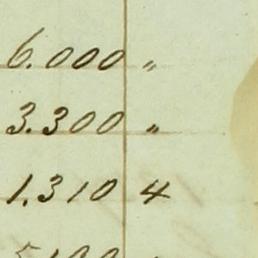 6.000 "
3.300 "
1.310 4